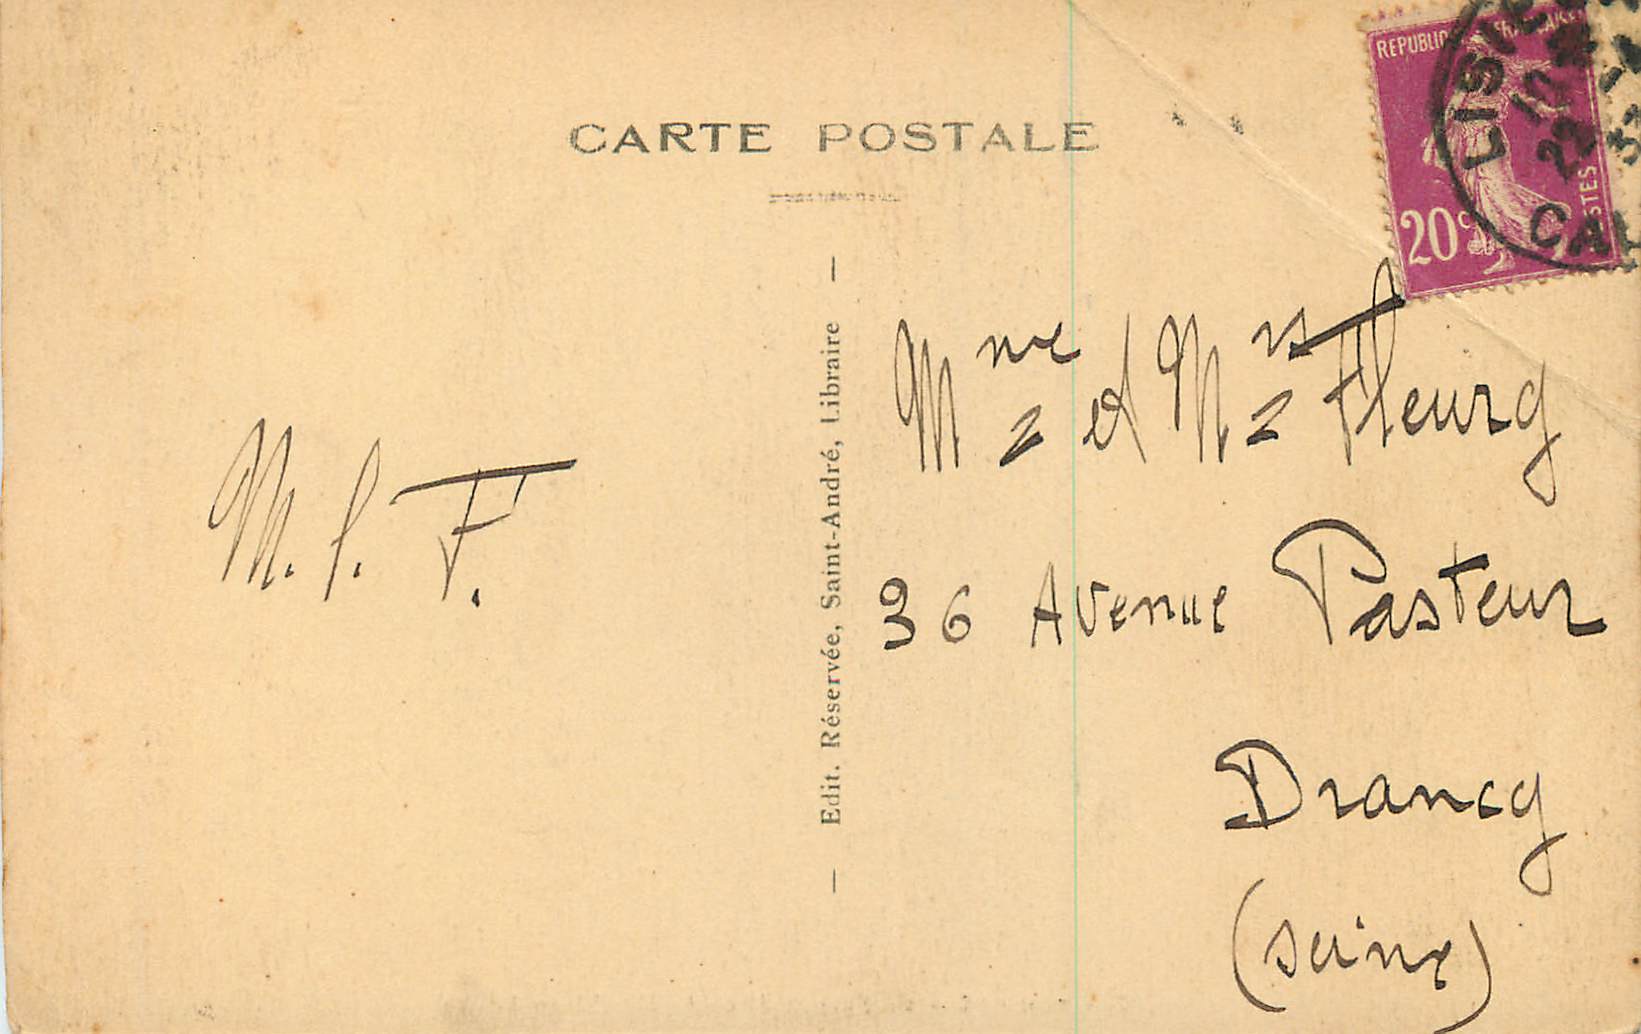 CARTE POSTALE
REPUBLIQUE FRANÇAISE
20c
POSTES
LISIEUX
17
22
CAL
Mme et Mr Fleury
36 Avenue Pasteur
Drancy
(Seine)
M. L. F.
— Edit. Réservée, Saint-André, Libraire —